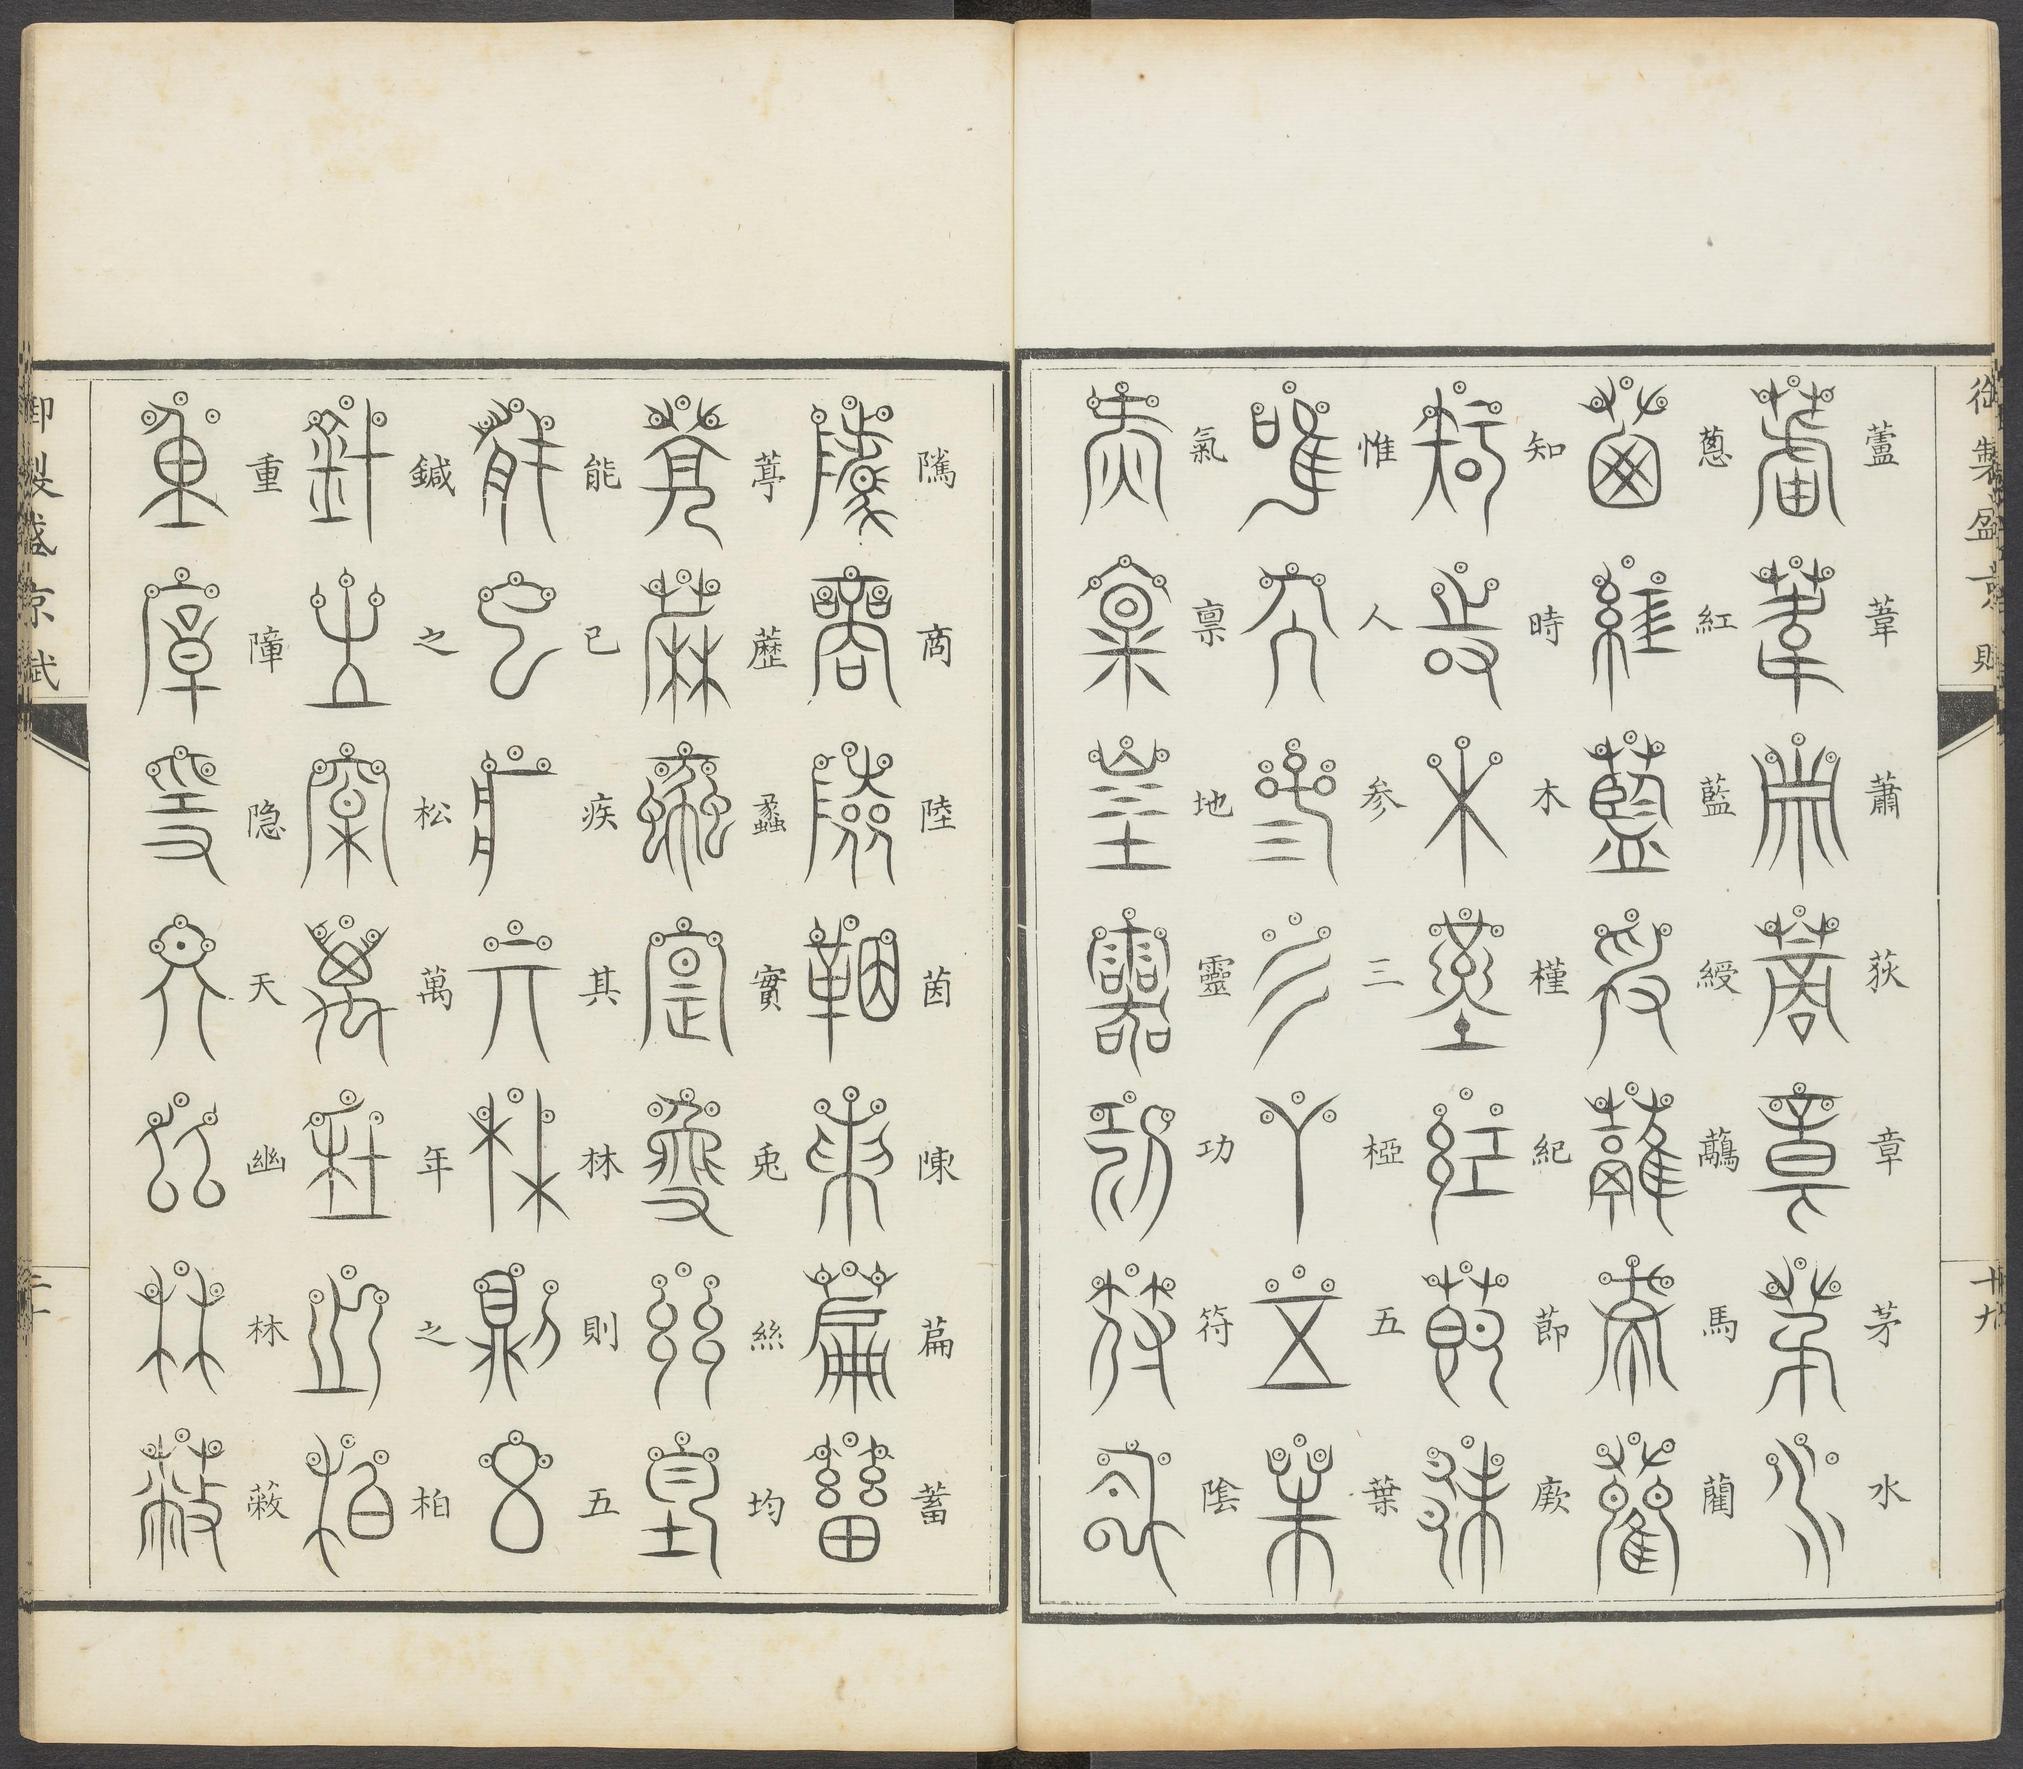 御製盛京賦 十九
蘆葦蕭荻章茅水
葱紅藍綬虉馬藺
知時木槿紀莭厥
惟人参三椏五葉
氣禀地靈功符陰
商陸茵陳萹蓄
葶藶蠡實兎絲均
能已疾其林則五
鍼之松萬年之柏
重障隐天幽林蔽
御製盛京賦 二十